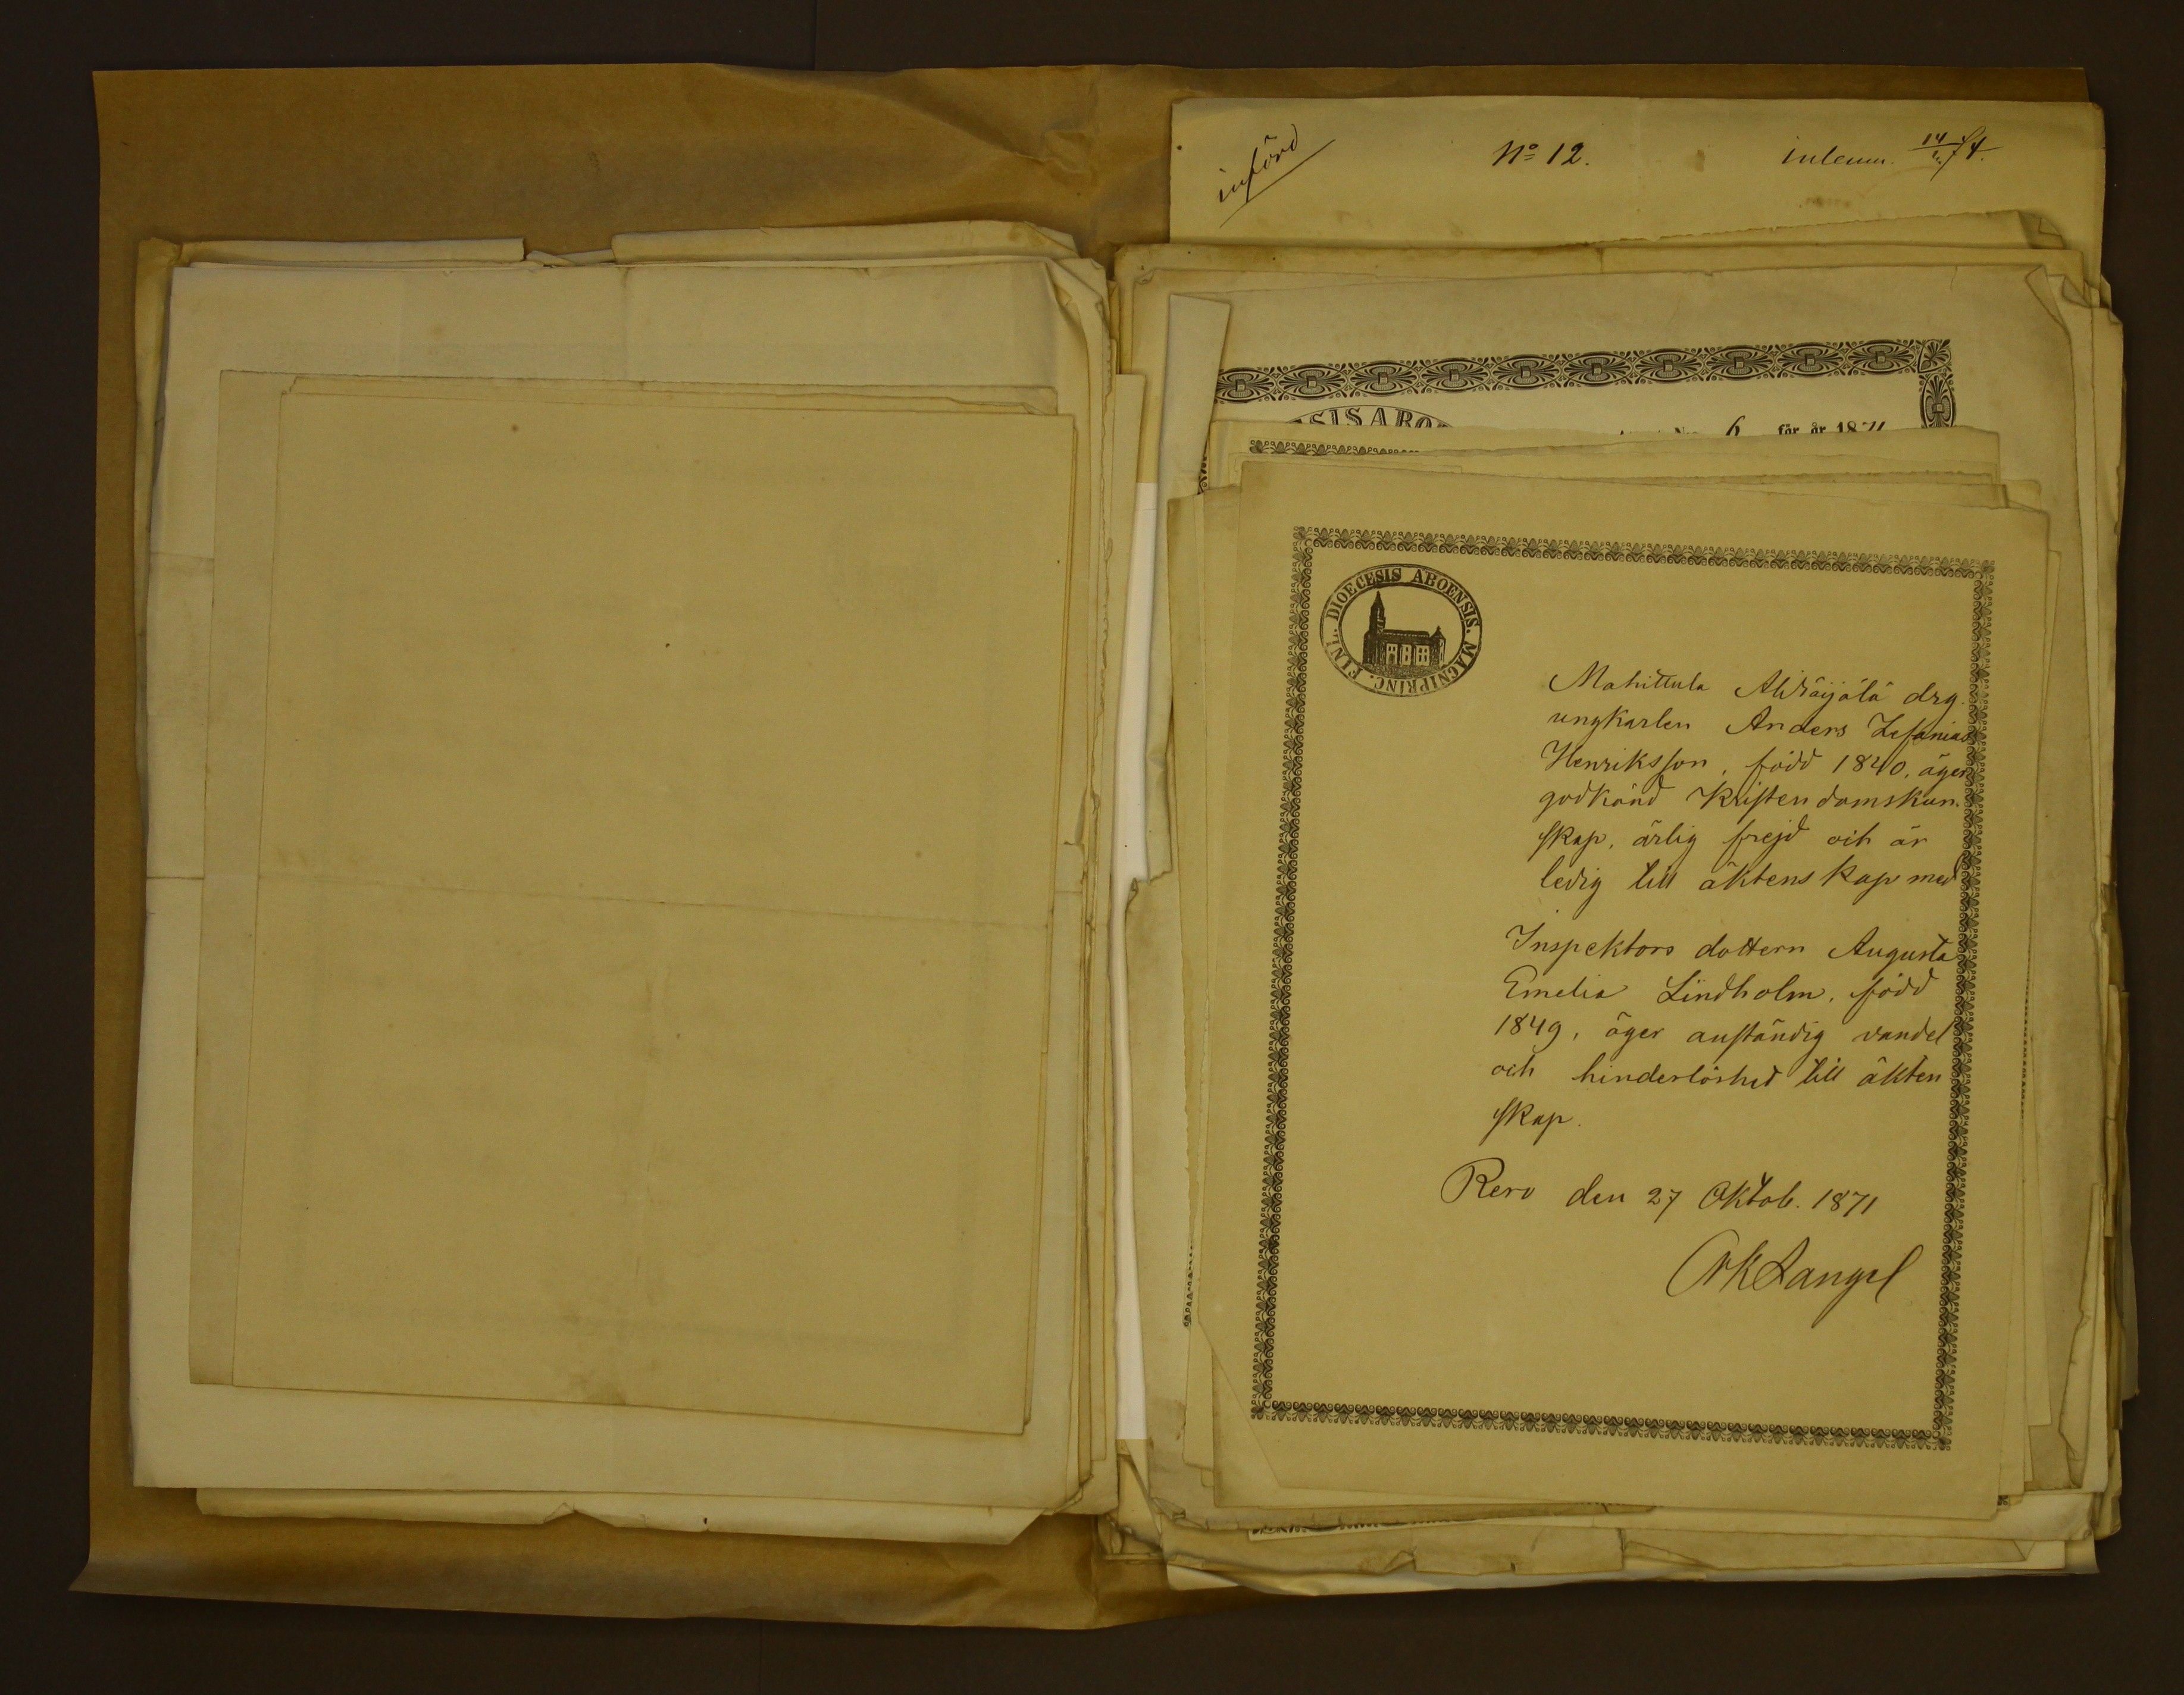 införd
No 12.
inlemn. 14/2 74.
SISABO
No 6 för år 1871
DIOECESIS ABOENSIS. MAGNIPRINC. FINL.
Mahittula Alidräijälä drg.
ungkarlen Anders Zefanias
Henriksson, född 1840, äger
godkänd Kristendomskun-
skap, ärlig frejd och är
ledig till äktenskap med
Inspektors dottern Augusta
Emelia Lindholm, född
1849, äger anständig vandel
och hinderlöshet till äkten
skap.
Rero den 27 Oktob. 1871
Langel